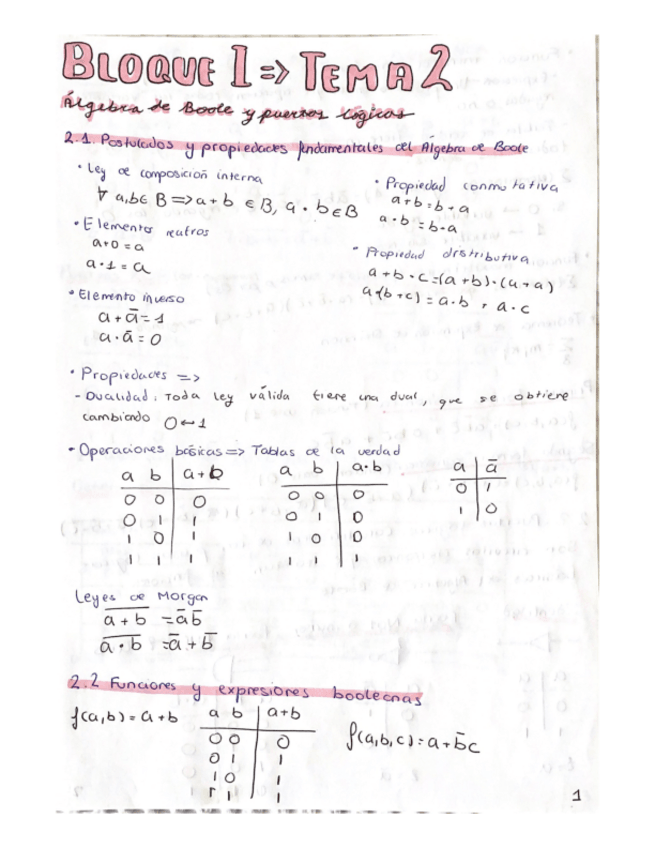 BLOQUE 1 => TEMA 2
Álgebra de Boole y puertas lógicas
2.1. Postulados y propiedades fundamentales del Álgebra de Boole
• Ley de composición interna
∀ a,b∈ B => a + b ∈ B, a · b ∈ B
• Elementos neutros
a+0 = a
a·1 = a
• Elemento inverso
a + ā = 1
a · ā = 0
• Propiedad conmutativa
a+b = b+a
a·b = b·a
• Propiedad distributiva
a + b · c = (a + b) · (a + a)
a·(b + c) = a·b + a·c
• Propiedades =>
- Dualidad: Toda ley válida tiene una dual, que se obtiene
cambiando 0↔1
• Operaciones básicas => Tablas de la verdad
a b a+b
0 0 0
0 1 1
1 0 1
1 1 1
a b a·b
0 0 0
0 1 0
1 0 0
1 1 1
a ā
0 1
1 0
Leyes de Morgan
a̅ ̅+̅ ̅b̅ = ā b̅
a̅ ̅·̅ ̅b̅ = ā + b̅
2.2 Funciones y expresiones booleanas
f(a,b) = a + b
a b a+b
0 0 0
0 1 1
1 0 1
1 1 1
f(a,b,c) = a + b̅c
1